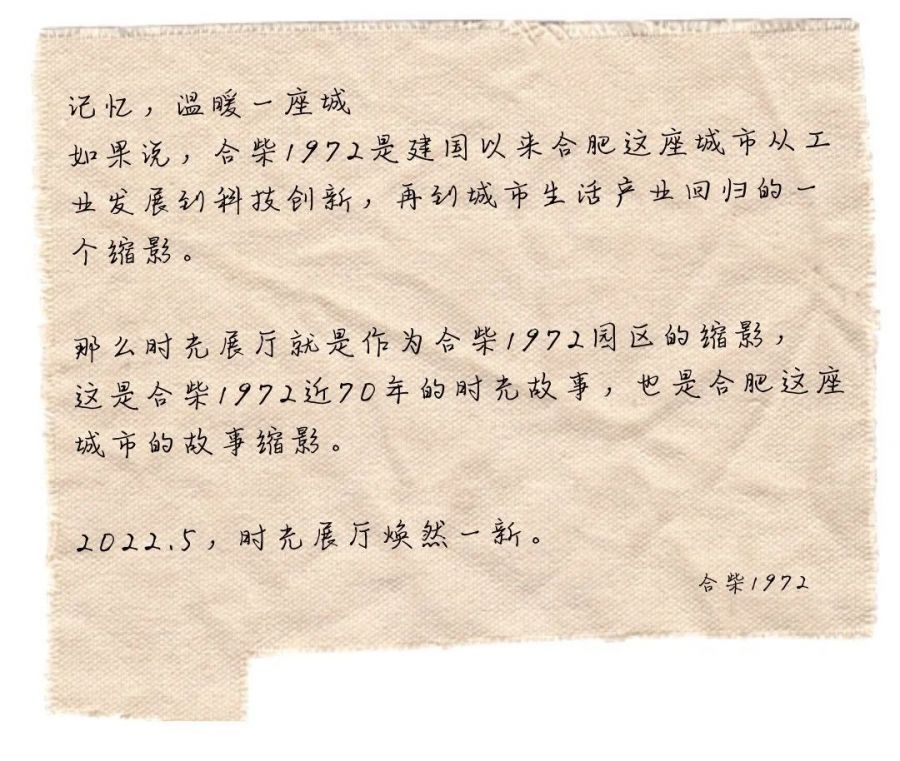 记忆，温暖一座城
如果说，合柴1972是建国以来合肥这座城市从工
业发展到科技创新，再到城市生活产业回归的一
个缩影。
那么时光展厅就是作为合柴1972园区的缩影，
这是合柴1972近70年的时光故事，也是合肥这座
城市的故事缩影。
2022.5，时光展厅焕然一新。
合柴1972